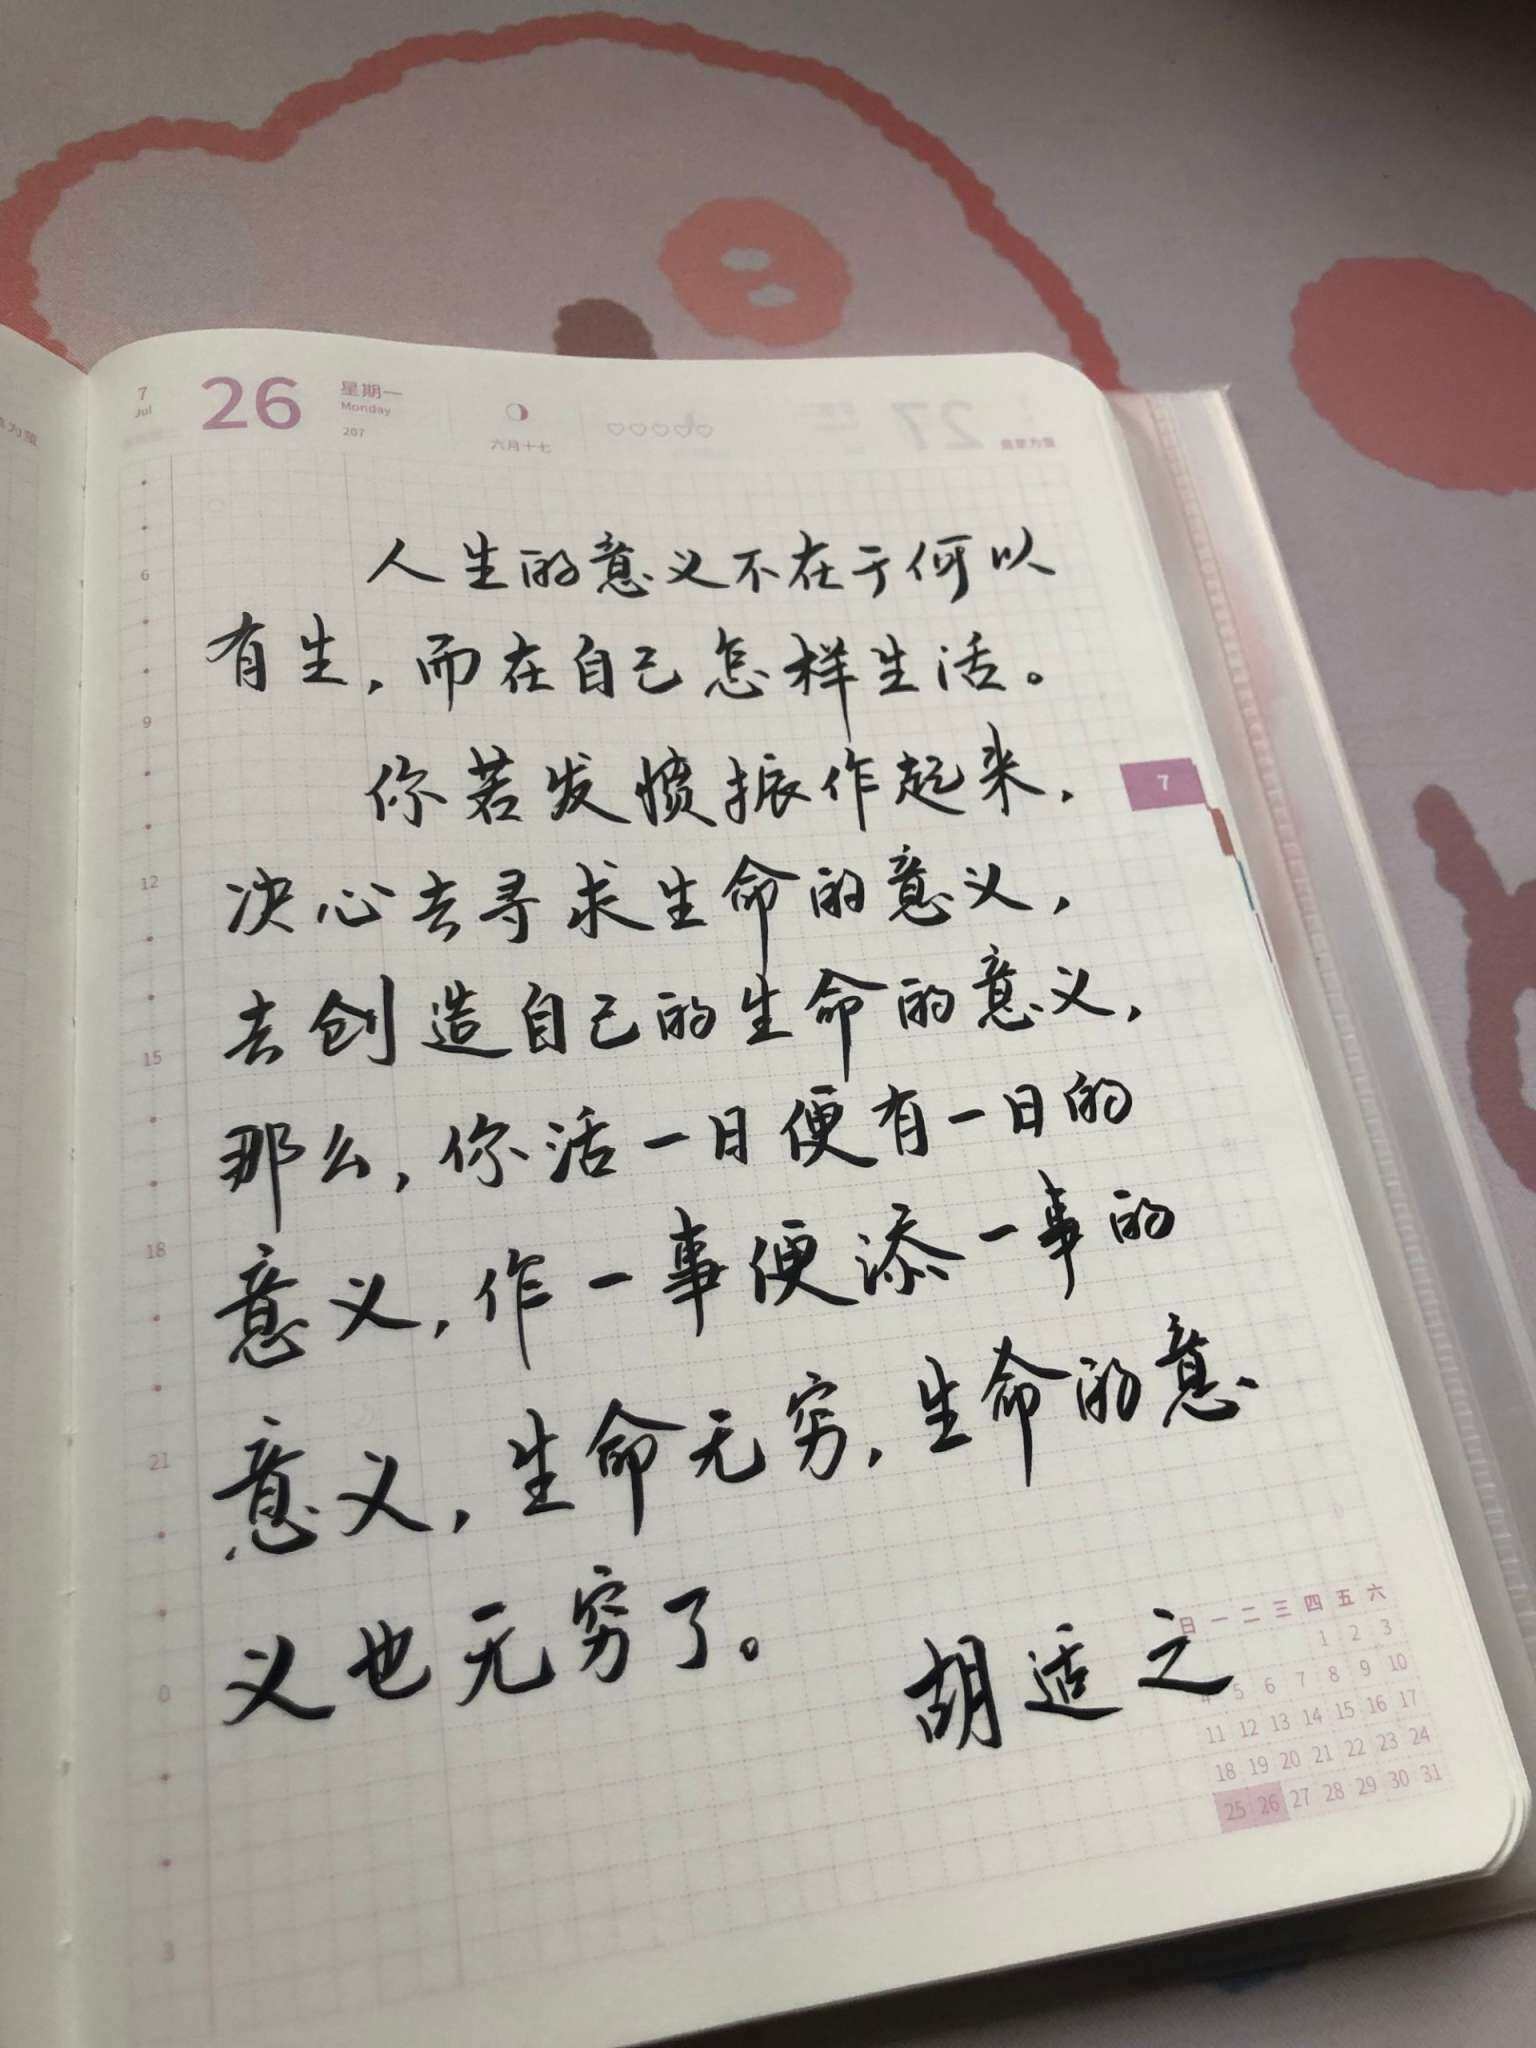 7
Jul
26
星期一
Monday
207
六月十七
人生的意义不在于何以
有生,而在自己怎样生活。
你若发愤振作起来,
决心去寻求生命的意义,
去创造自己的生命的意义,
那么,你活一日便有一日的
意义,作一事便添一事的
意义,生命无穷,生命的意
义也无穷了。
胡适之
7
6
9
12
15
18
21
0
3
日 一 二 三 四 五 六
1 2 3
4 5 6 7 8 9 10
11 12 13 14 15 16 17
18 19 20 21 22 23 24
25 26 27 28 29 30 31